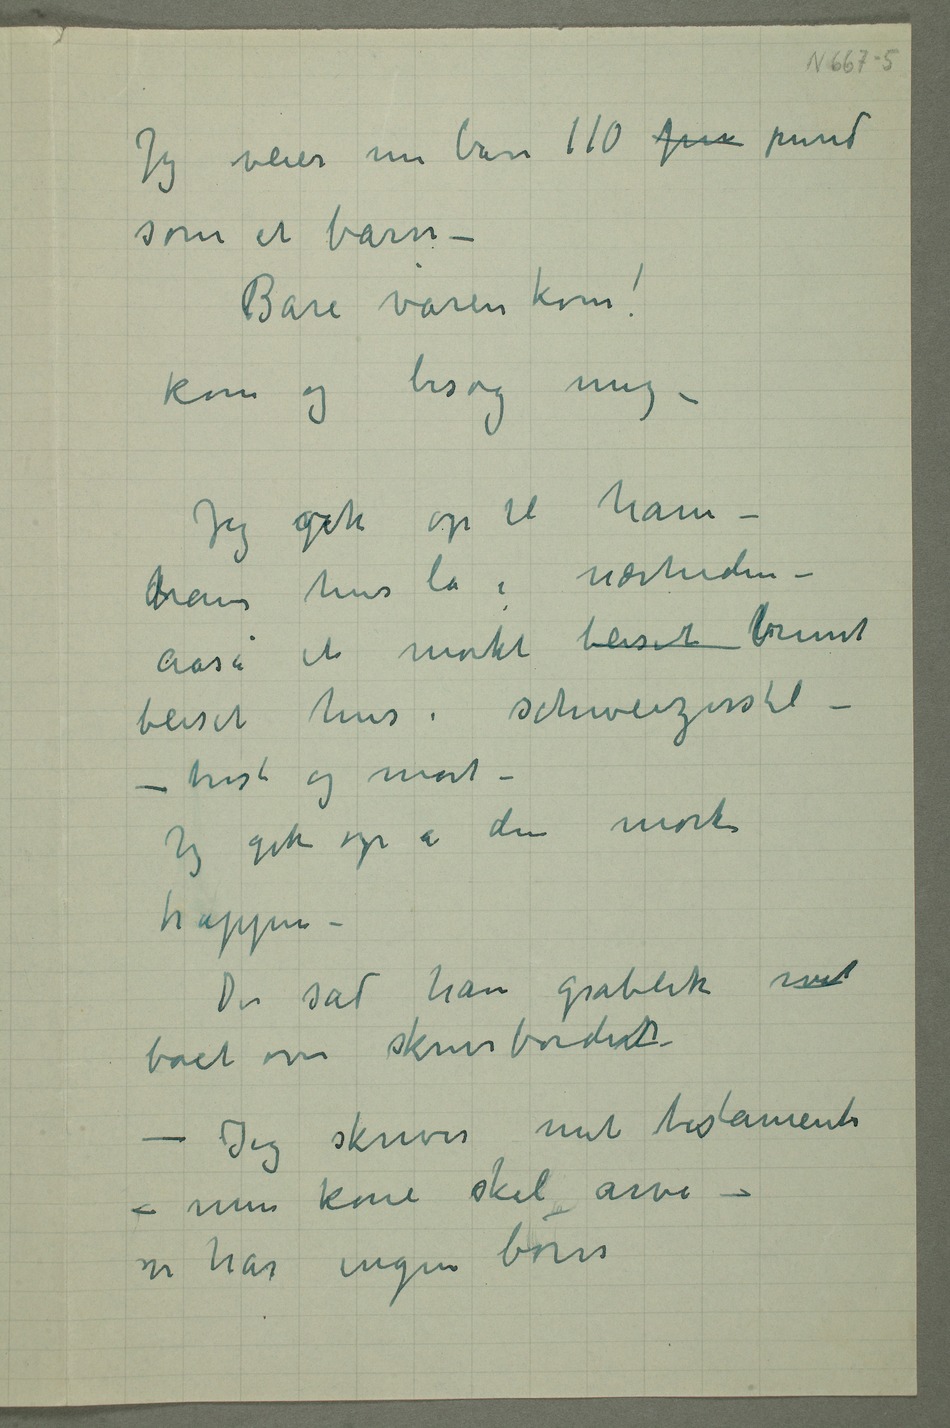 N 667-5
Jeg veier nu bare 110 pun pund
som et barn –
Bare våren kom!
kom og besøg mig –
Jeg gik op til ham –
hans hus lå i nærheden –
også et mørkt beiset brunt
beiset hus i schweizerstil –
– trist og mørt –
Jeg gik op a den mørke
trappen –
Der sad han gråblek med
bøiet over skrivbordet –
– Jeg skriver mit testamente
– min kone skal arve –
vi har ingen børn